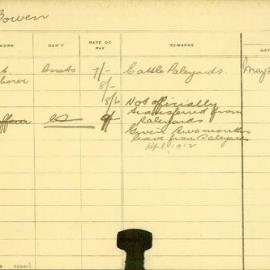 Bowen
WORK DEP'T RATE OF PAY REMARKS DA
borer Assets 7/- Cattle Saleyards. May
8/-
8/6 Not officially
transferred from
Saleyards
Given two months
leave from Saleyards
Sept 1912